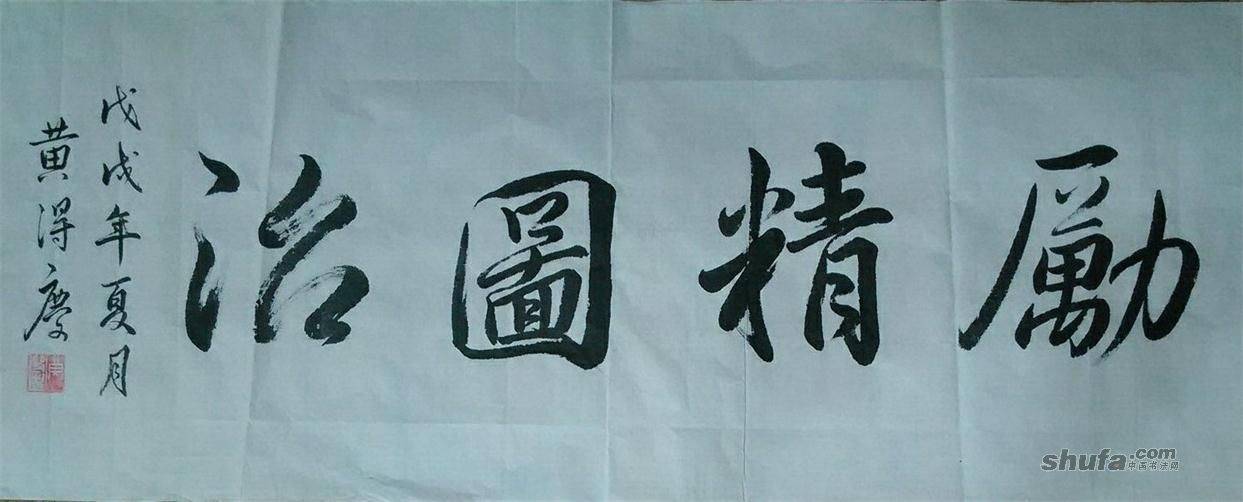 勵精圖治
戊戌年夏月
黄得慶
shufa.com
中国书法网